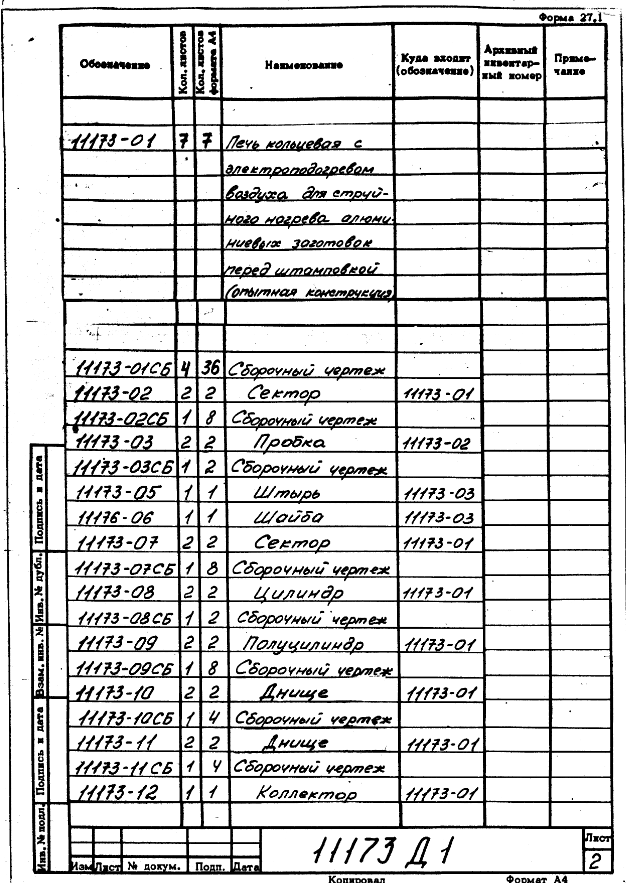 Форма 27.1
Обозначение Кол. листов Кол. листов формата А4 Наименование Куда входит (обозначение) Архивный инвентар-ный номер Приме-чание
11173-01 7 7 Печь кольцевая с
электроподогревом
воздуха для струй-
ного нагрева алюми-
ниевых заготовок
перед штамповкой
(опытная конструкция)
11173-01СБ 4 36 Сборочный чертеж
11173-02 2 2 Сектор 11173-01
11173-02СБ 1 8 Сборочный чертеж
11173-03 2 2 Пробка 11173-02
11173-03СБ 1 2 Сборочный чертеж
11173-05 1 1 Штырь 11173-03
11176-06 1 1 Шайба 11173-03
11173-07 2 2 Сектор 11173-01
11173-07СБ 1 8 Сборочный чертеж
11173-08 2 2 Цилиндр 11173-01
11173-08СБ 1 2 Сборочный чертеж
11173-09 2 2 Полуцилиндр 11173-01
11173-09СБ 1 8 Сборочный чертеж
11173-10 2 2 Днище 11173-01
11173-10СБ 1 4 Сборочный чертеж
11173-11 2 2 Днище 11173-01
11173-11СБ 1 4 Сборочный чертеж
11173-12 1 1 Коллектор 11173-01
Инв. № подл. Подпись и дата Взам. инв. № Инв. № дубл. Подпись и дата
11173 Д1
Лист
2
Изм Лист № докум. Подп. Дата
Копировал Формат А4